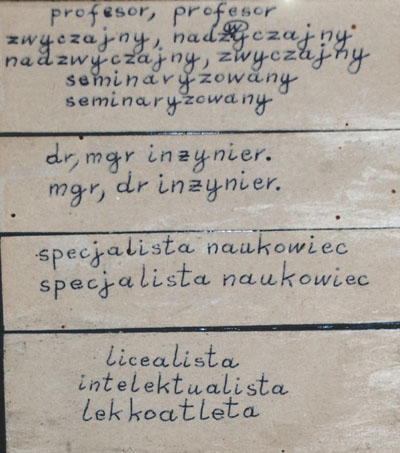 profesor, profesor
zwyczajny, nadzwyczajny
nadzwyczajny, zwyczajny
seminaryzowany
seminaryzowany
dr, mgr inzynier.
mgr, dr inzynier.
specjalista naukowiec
specjalista naukowiec
licealista
intelektualista
lekkoatleta